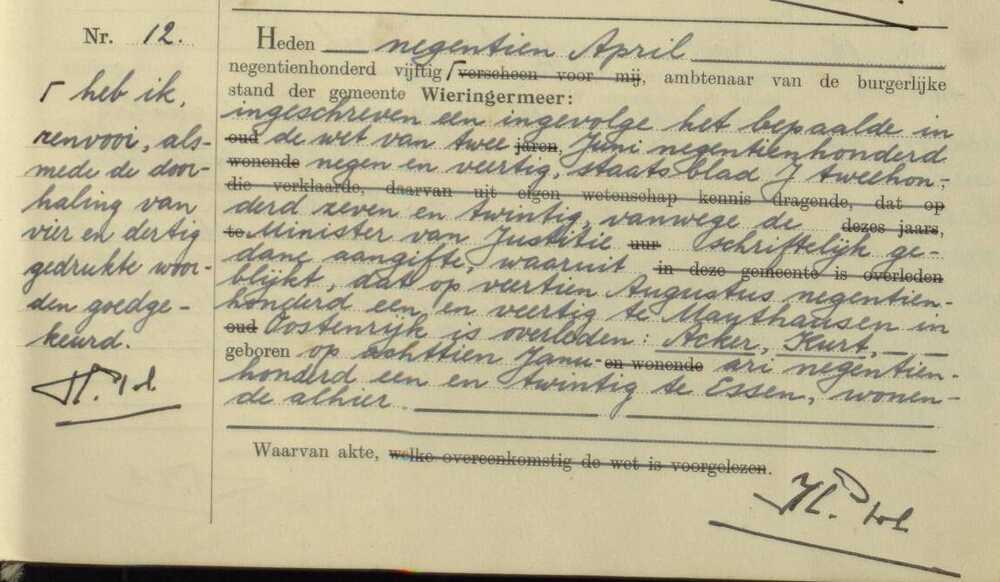 Nr. 12.
Γ heb ik,
renvooi, als-
mede de door-
haling van
vier en dertig
gedrukte woor-
den goedge-
keurd.
Heden negentien April
negentienhonderd vijftig Γ verscheen voor mij, ambtenaar van de burgerlijke
stand der gemeente Wieringermeer:
ingeschreven een ingevolge het bepaalde in
oud de wet van twee jaren, Juni negentienhonderd
wonende negen en veertig, staatsblad J tweehon-
die verklaarde, daarvan uit eigen wetenschap kennis dragende, dat op
derd zeven en twintig, vanwege de dezes jaars,
te Minister van Justitie uur schriftelijk ge-
dane aangifte, waaruit in deze gemeente is overleden
blijkt, dat op veertien Augustus negentien-
honderd een en veertig te Mauthausen in
oud Oostenrijk is overleden: Acker, Kurt,
geboren op achttien Janu- en wonende ari negentien-
honderd een en twintig te Essen, wonen-
de alhier.
Waarvan akte, welke overeenkomstig de wet is voorgelezen.